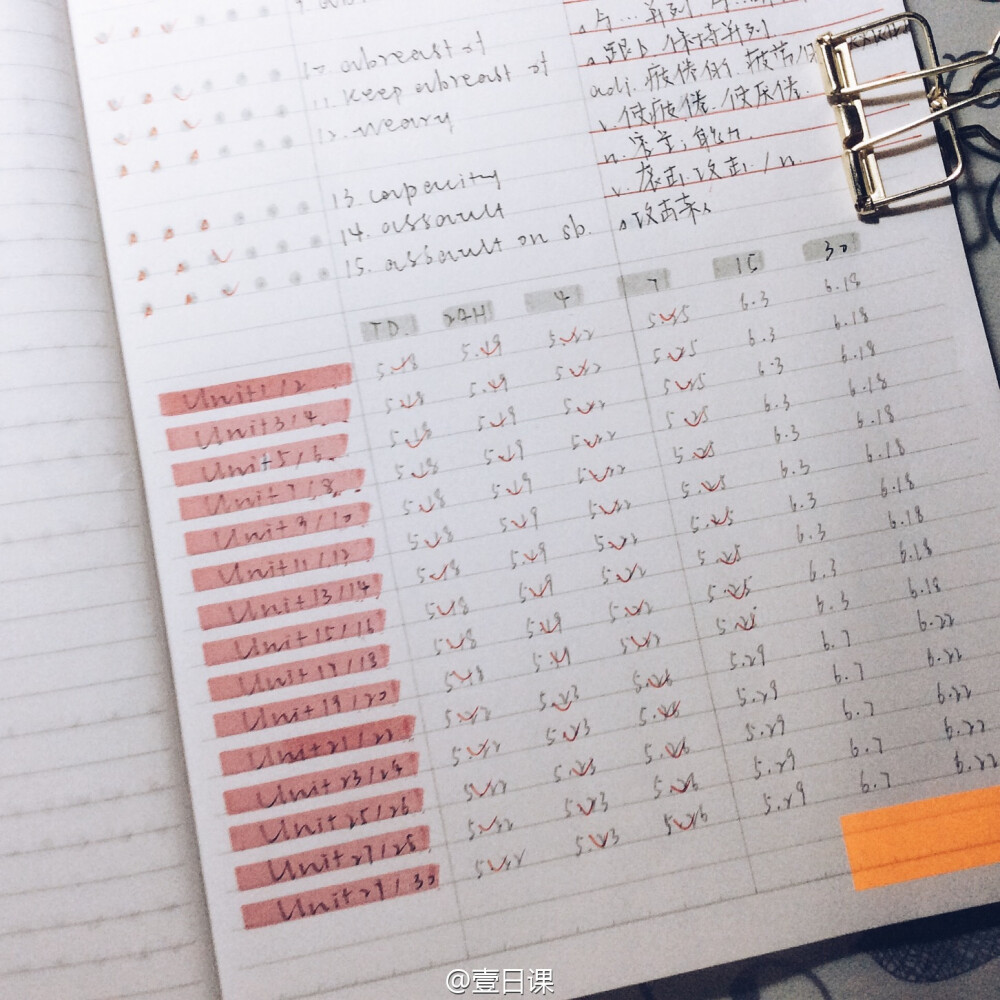 10. abreast of 与…并列
11. keep abreast of 跟上 保持并列
12. weary adj. 疲倦的, 疲劳的
v. 使疲倦, 使厌倦.
13. capacity n. 容量; 能力.
14. assault v. 袭击, 攻击 / n.
15. assault on sb. 攻击某人
TD. 24H 4 7 15 30
Unit 1/2 5.18 5.19 5.22 5.25 6.3 6.18
Unit 3/4 5.18 5.19 5.22 5.25 6.3 6.18
Unit 5/6 5.18 5.19 5.22 5.25 6.3 6.18
Unit 7/8 5.18 5.19 5.22 5.25 6.3 6.18
Unit 9/10 5.18 5.19 5.22 5.25 6.3 6.18
Unit 11/12 5.18 5.19 5.22 5.25 6.3 6.18
Unit 13/14 5.18 5.19 5.22 5.25 6.3 6.18
Unit 15/16 5.18 5.19 5.22 5.25 6.3 6.18
Unit 17/18 5.18 5.19 5.22 5.25 6.3 6.18
Unit 19/20 5.18 5.19 5.22 5.25 6.3 6.18
Unit 21/22 5.22 5.23 5.26 5.29 6.7 6.22
Unit 23/24 5.22 5.23 5.26 5.29 6.7 6.22
Unit 25/26 5.22 5.23 5.26 5.29 6.7 6.22
Unit 27/28 5.22 5.23 5.26 5.29 6.7 6.22
Unit 29/30 5.22 5.23 5.26 5.29 6.7 6.22
@壹日课